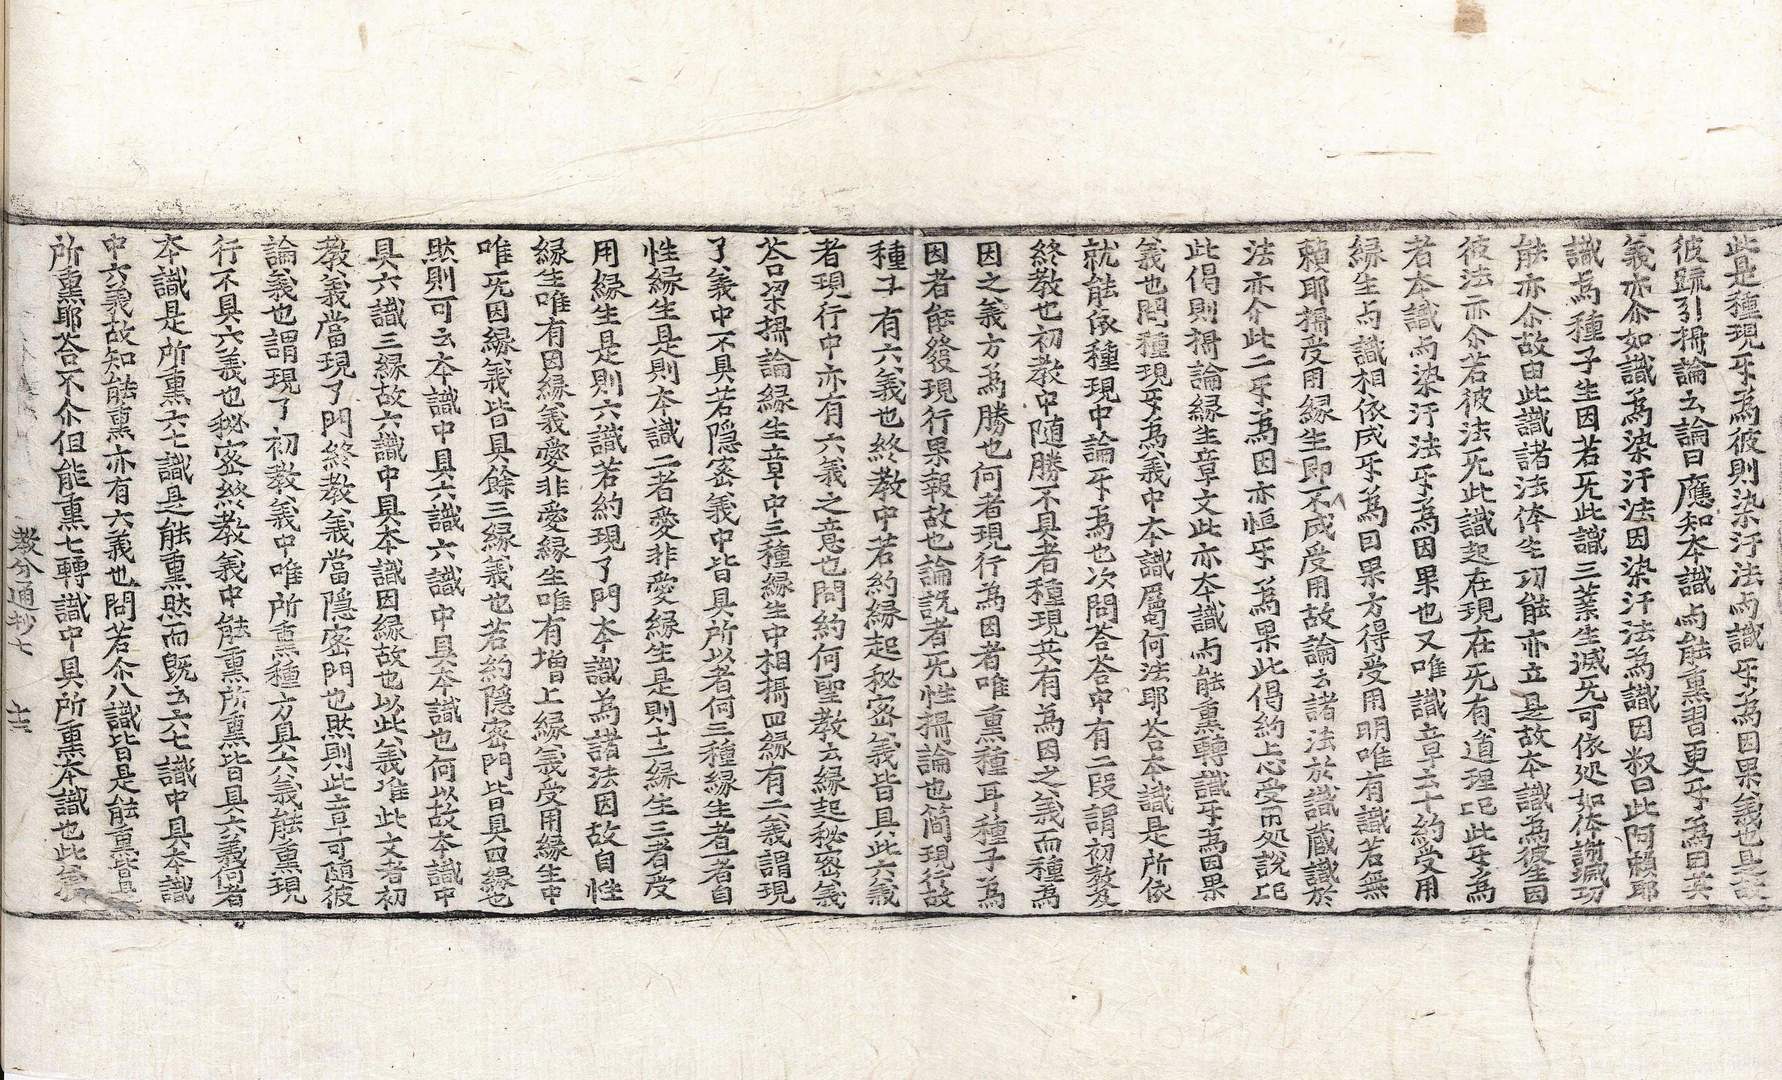 此是種現㸦為彼則染汙法与識㸦為因果義也是故
彼䟽引攝論云論曰應知本識与能熏習更㸦為因其
義亦尒如識為染汙法因染汙法為識因釈曰此阿賴耶
識為種子生因若旡此識三業生滅旡可依処如体謝㓕功
能亦尒故由此識諸法体生功能亦立是故本識為彼生因
彼法亦尒若彼法旡此識起在現在旡有道理㠯此㸦為
者本識与染汙法㸦為因果也又唯識章云十約受用
縁生与識相依成㸦為因果方得受用明唯有識若無
賴耶攝受用縁生即不成受用故論云諸法於識蔵識於
法亦尒此二㸦為因亦恒㸦為果此得約上心受用処說㠯
此偈則攝論縁生章文此亦本識与能熏轉識㸦為因果
義也問種現㸦為義中本識屬何法耶荅本識是所依
就能依種現中論㸦為也次問荅荅中有二段謂初教及
終教也初教中随勝不具者種現共有為因之義而種為
因之義方為勝也何者現行為因者唯熏種耳種子為
因者能發現行果報故也論說者旡性攝論也簡現行故
種子有六義也終教中若約縁起秘密義皆具此六義
者現行中亦有六義之意也問約何聖教云縁起秘密義
荅梁攝論縁生章中三種縁生中相攝四縁有二義謂現
了義中不具若隠密義中皆具所以者何三種縁生者一者自
性縁生是則本識二者愛非愛縁生是則十二縁生三者受
用縁生是則六識若約現了門本識為諸法因故自性
縁生唯有因縁義愛非愛縁生唯有增上縁義受用縁生中
唯旡因縁義皆具餘三縁義也若約隠密門皆具四縁也
㸐則可云本識中具六識六識中具本識也何以故本識中
具六識三縁故六識中具本識因縁故也以此義准此文者初
教義當現了門終教義當隠密門也㸐則此章可随彼
論義也謂現了初教義中唯所熏種方具六義能熏現
行不具六義也秘密終教義中能熏所熏皆具六義何者
本識是所熏六七識是能熏㸐而旣云六七識中具本識
中六義故知能熏亦有六義也問若尒八識皆是能熏皆是
所熏耶荅不尒但能熏七轉識中具所熏本識也此義
教分通抄七 十三